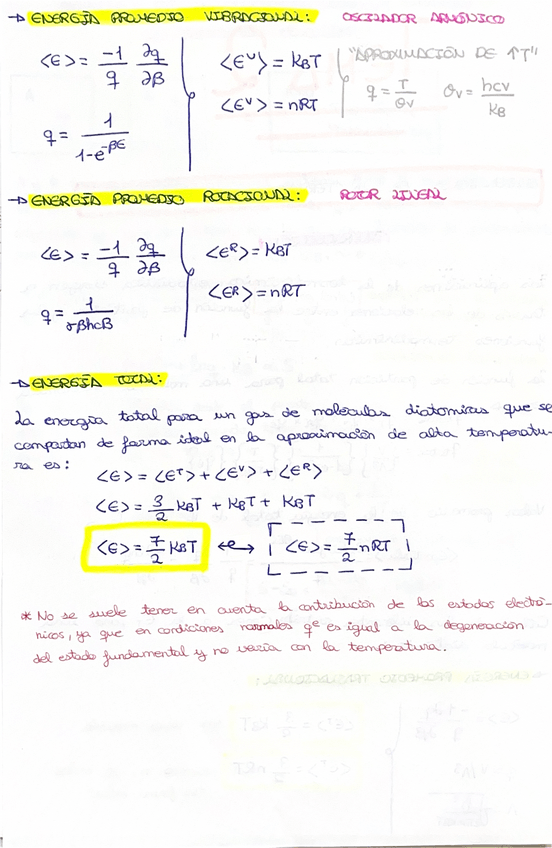 → ENERGÍA PROMEDIO VIBRACIONAL: OSCILADOR ARMÓNICO
<E> = -1/q ∂q/∂β
<E^V> = KBT
"APROXIMACIÓN DE ↑T"
q = T/θv θv = hcv/KB
<E^V> = nRT
q = 1/1-e^-βE
→ ENERGÍA PROMEDIO ROTACIONAL: ROTOR LINEAL
<E> = -1/q ∂q/∂β
<E^R> = KBT
<E^R> = nRT
q = 1/σβhcB
→ ENERGÍA TOTAL:
La energía total para un gas de moléculas diatómicas que se
comportan de forma ideal en la aproximación de alta temperatu-
ra es:
<E> = <E^T> + <E^V> + <E^R>
<E> = 3/2 KBT + KBT + KBT
<E> = 7/2 KBT ↔ <E> = 7/2 nRT
* No se suele tener en cuenta la contribución de los estados electró-
nicos, ya que en condiciones normales q^e es igual a la degeneración
del estado fundamental y no varía con la temperatura.